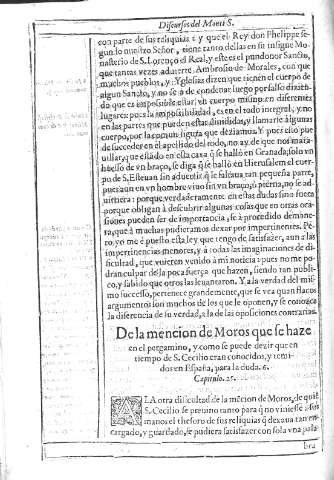 Discursos del Monte S.
con parte de sus reliquias: y que el Rey don Phelippe se-
gundo nuestro Señor, tiene tanto dellas en su insigne Mo-
nasterio de S. Lorenço el Real, y este es el pundonor Sancto,
que tantas vezes aduierte Ambrosio de Morales, con que
muchos pueblos, y Yglesias dizen que tienen el cuerpo de
algun Sancto, y no se à de condenar luego por falso dizien
do que es imposible estar vn cuerpo mismo en diferentes
lugares: pues la imposibilidad, es en el todo integral, y no
en las partes que pueden estar diuididas, y llamarle algunas
cuerpo, por la comun figura que deziamos. Y pues esto pue
de succeder en el apellido del todo, no ay de que nos mara-
uillar, que estãdo en esta caxa q̃ se hallò en Granada, solo vn
huesso de vn braço, se diga q̃ se hallò en Hierusalem el cuer-
po de S. Esteuan sin aduertir q̃ le faltaua tan pequeña parte,
pues aun en vn hombre viuo sin vn braço, ò pierna, no se ad-
uirtiera: porque verdaderamente en estas dudas sino fuera
porque obligan à descubrir algunas cosas que en otras oca-
siones pueden ser de importancia, se à procedido demane-
ra, que à muchas pudieramos dexar por impertinentes. Pe-
ro yo me è puesto esta ley que tengo de satisfazer, aun a las
impertinencias menores, y à todas las imaginaciones de di-
ficultad, que vuieren venido à mi noticia: pues no me po-
dran culpar de la poca fuerça que hazen, siendo tan publi-
co, y sabido que otros las leuantaron. Y a la verdad del mis-
mo successo, pertenece grandemente, que se vea quan flacos
argumentos son muchos de los que le oponen, y se conosca
la diferencia de su verdad, a la de las oposiciones contrarias.
De la mencion de Moros que se haze
en el pergamino, y como se puede dezir que en
tiempo de S. Cecilio eran conocidos, y temi-
dos en España, para la duda. 6.
Capitulo. 25.
A LA otra dificultad de la mẽcion de Moros, de quiẽ
S. Cecilio se preuino tanto para q̃ no viniesse à sus
manos el thesoro de sus reliquias q̃ dexaua tan en-
cargado, y guardado, se pudiera satisfazer con sola vna pala-
bra